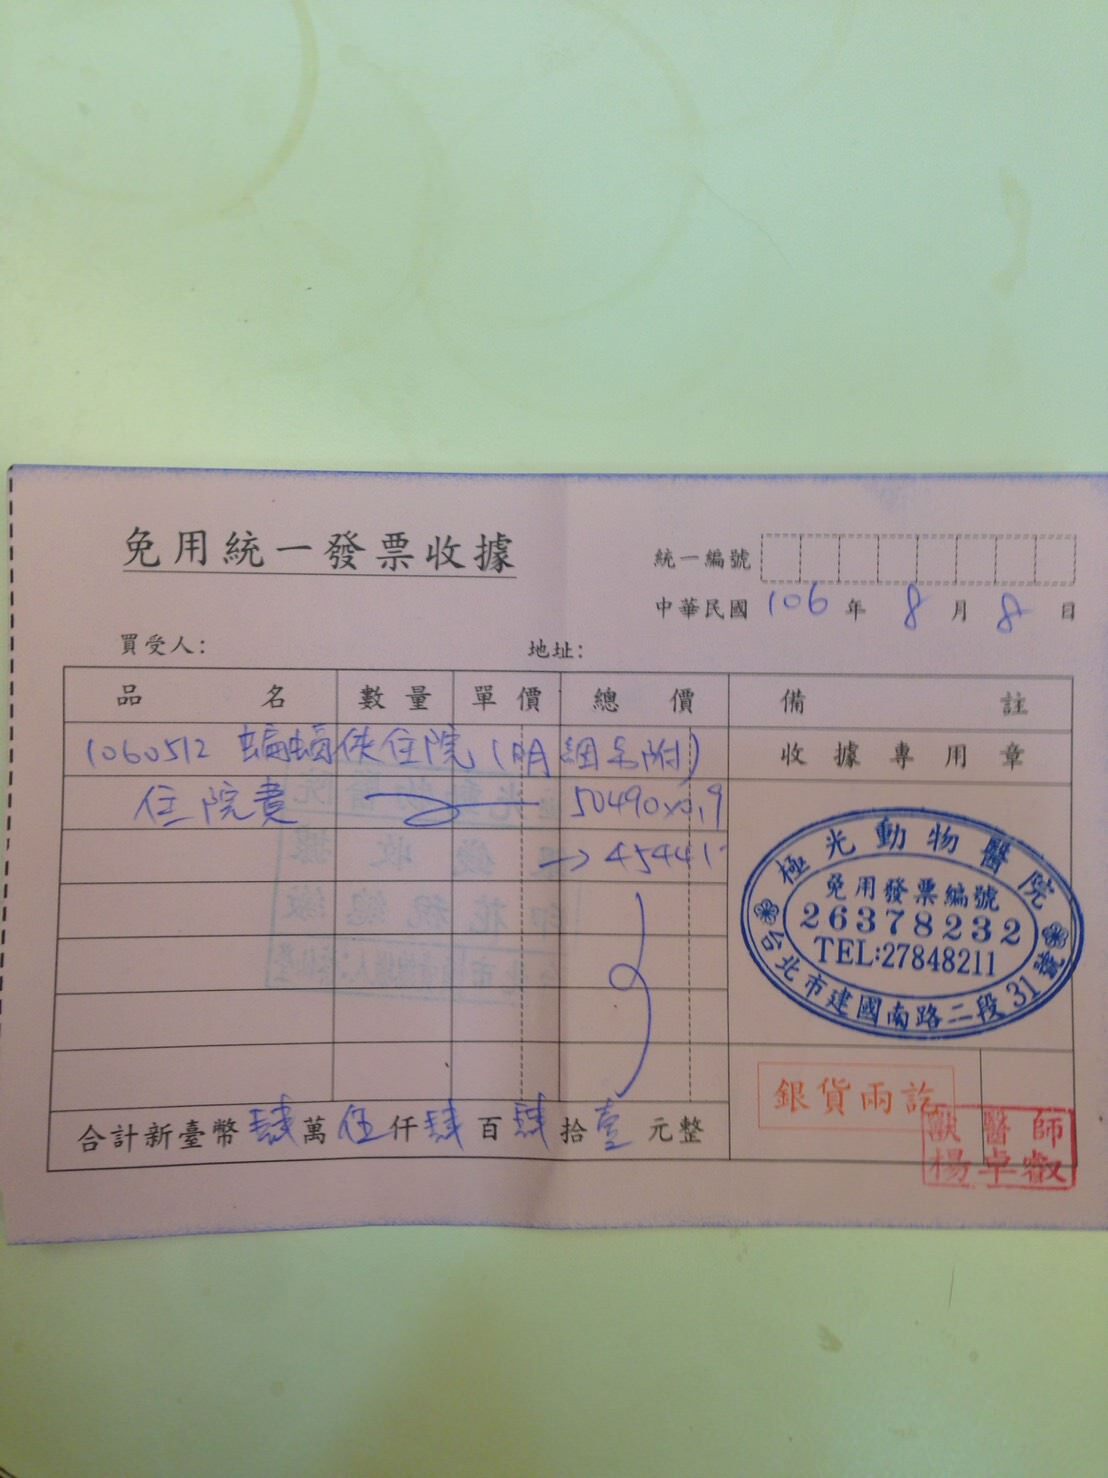 免用統一發票收據
統一編號
中華民國 106 年 8 月 8 日
買受人: 地址:
品名 數量 單價 總價 備註
1060512 蝙蝠俠住院(明細另附)
收據專用章
住院費 50490x0.9
→45441
極光動物醫院
免用發票編號
26378232
TEL:27848211
台北市建國南路二段31號
銀貨兩訖
獸醫師
楊卓叡
合計新臺幣肆萬伍仟肆百肆拾壹元整